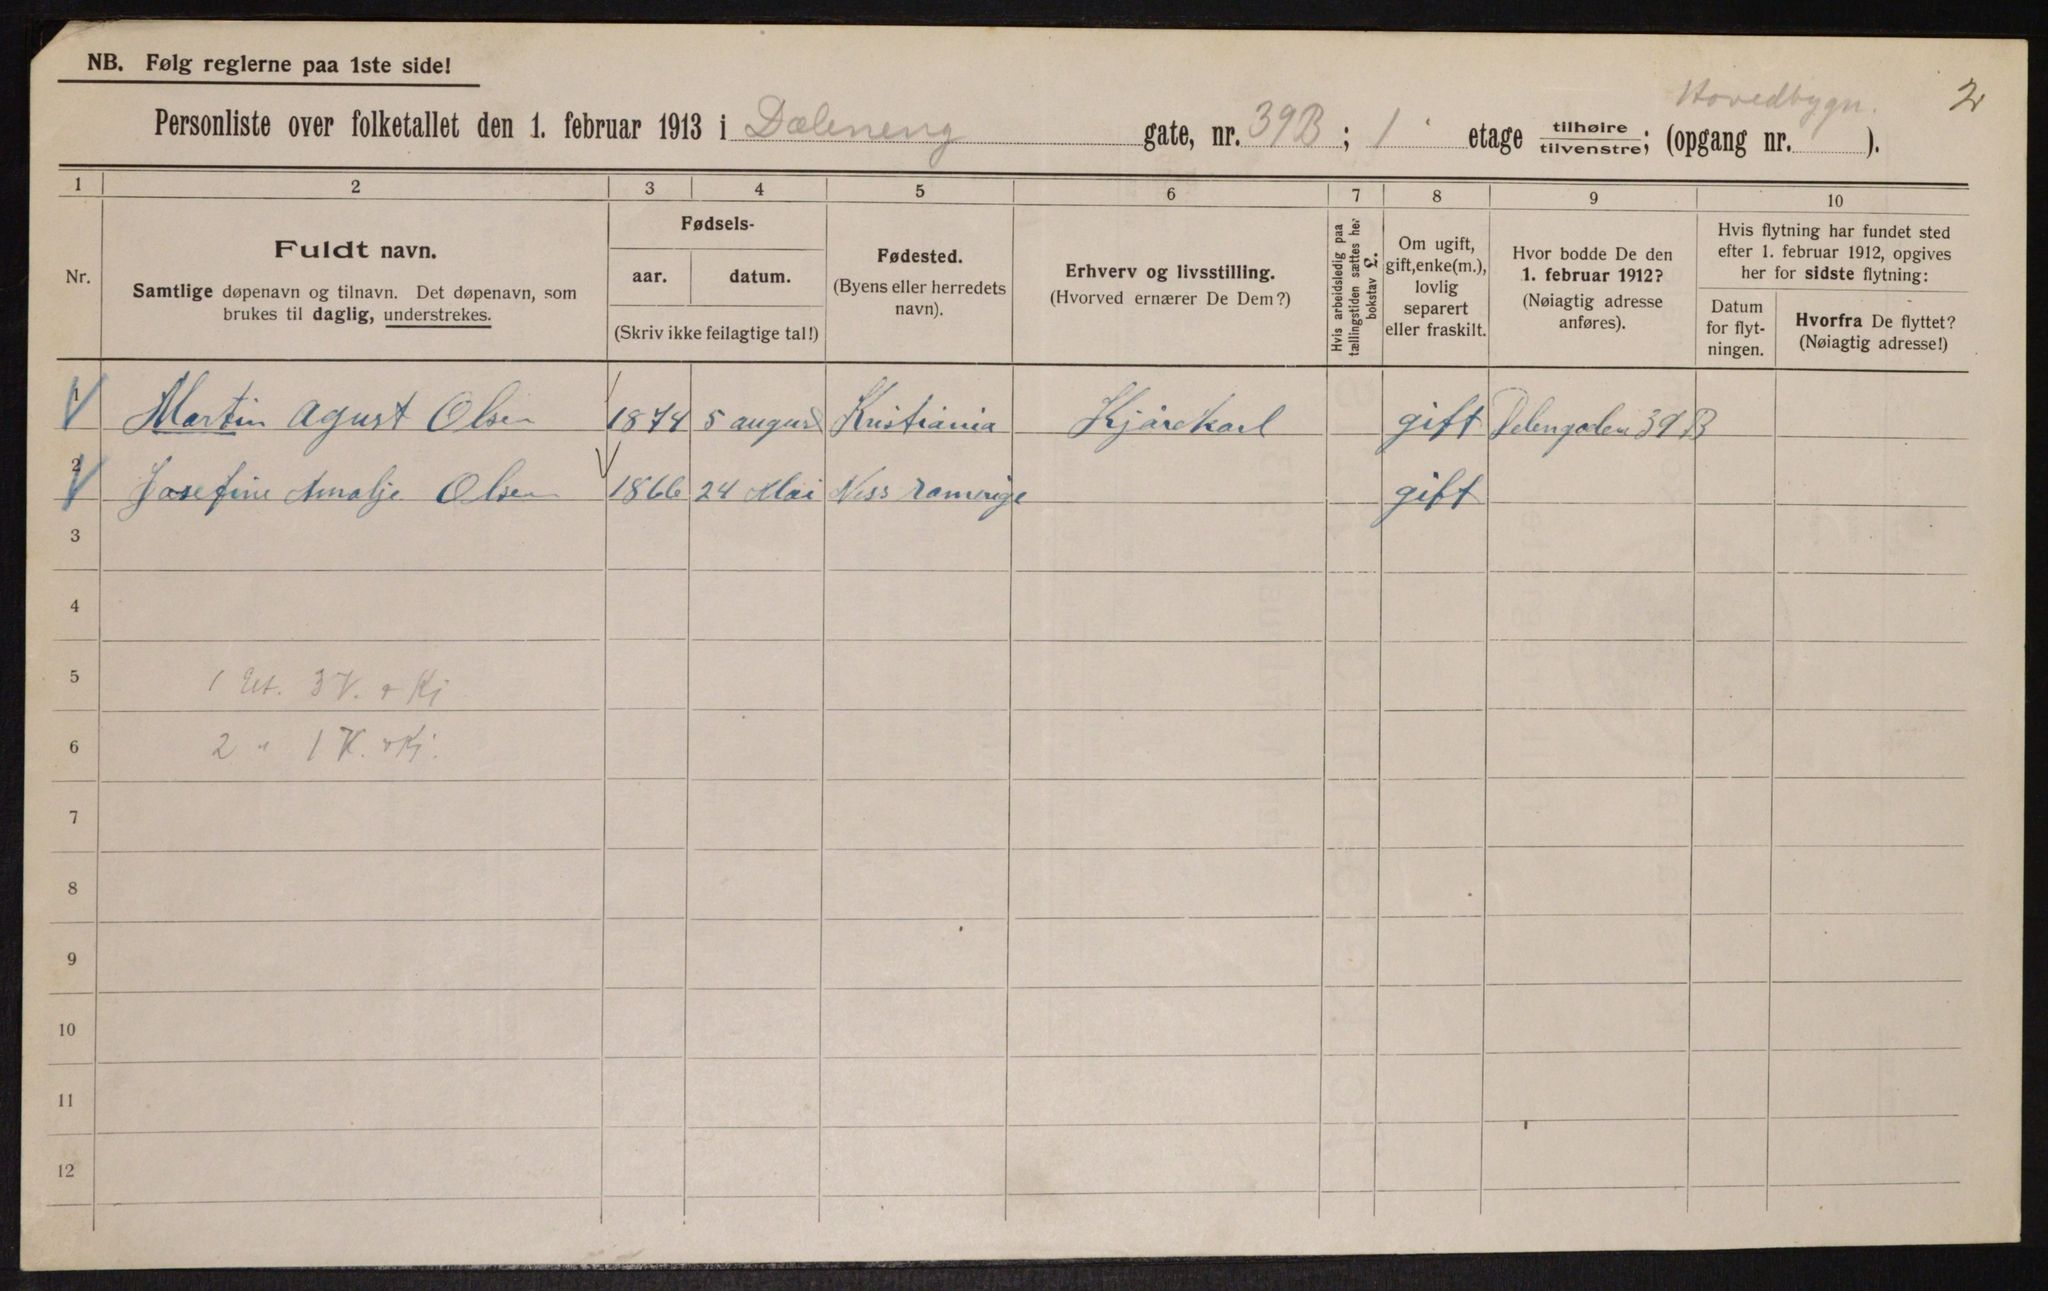 NB. Følg reglerne paa 1ste side!
Hovedbygn.
2
Personliste over folketallet den 1. februar 1913 i Dæleneng gate, nr. 39B; 1 etage tilhøire tilvenstre; (opgang nr. ).
1 2 3 4 5 6 7 8 9 10
Nr.
Fuldt navn.
Samtlige døpenavn og tilnavn. Det døpenavn, som
brukes til daglig, understrekes.
Fødsels-
aar. datum.
(Skriv ikke feilagtige tal!)
Fødested.
(Byens eller herredets
navn).
Erhverv og livsstilling.
(Hvorved ernærer De Dem?)
Hvis arbeidsledig paa
tællingstiden sættes her
bokstav L.
Om ugift,
gift, enke(m.),
lovlig
separert
eller fraskilt.
Hvor bodde De den
1. februar 1912?
(Nøiagtig adresse
anføres).
Hvis flytning har fundet sted
efter 1. februar 1912, opgives
her for sidste flytning:
Datum
for flyt-
ningen.
Hvorfra De flyttet?
(Nøiagtig adresse!)
1 Martin Agust Olsen 1874 5 august Kristiania Kjørekarl gift Delengaden 39 B
2 Josefine Amalje Olsen 1866 24 Mai Ness romerige gift
3
4
5 1 Et. 3 V. + Kj
6 2 " 1 V. + Kj.
7
8
9
10
11
12